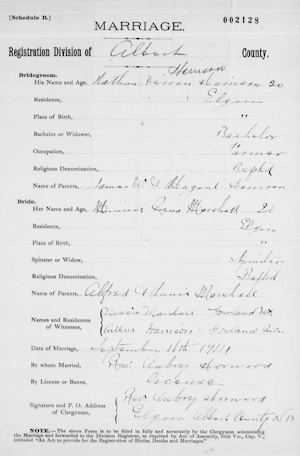 [Schedule B.]
002128
MARRIAGE.
Registration Division of Albert County.
Bridegroom.
Harrison
His Name and Age, Nathan 20
Residence, Elgin
Place of Birth, "
Bachelor or Widower, Bachelor
Occupation, Farmer
Religious Denomination, Baptist
Name of Parents, James W. & Harrison
Bride.
Her Name and Age, Minnie Marshall 20
Residence, Elgin
Place of Birth, "
Spinster or Widow, Spinster
Religious Denomination, Baptist
Name of Parents, Alfred & Annie Marshall
Names and Residences of Witnesses, Marshall
Arthur Harrison
Date of Marriage, September 16th 1911
By whom Married, Rev. Aubrey Horwood
By License or Banns, License
Signature and P. O. Address of Clergyman, Rev. Aubrey Horwood
Elgin Albert County N B
NOTE.—The above Form is to be filled in fully and accurately by the Clergyman solemnizing
the Marriage and forwarded to the Division Registrar, as required by Act of Assembly, 50th Vic., Cap. V.,
intituled "An Act to provide for the Registration of Births, Deaths and Marriages."